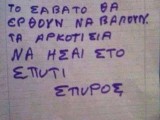 ΤΟ ΣΑΒΑΤΟ ΘΑ
ΕΡΘΟΥΝ ΝΑ ΒΑΛΟΥΝ
ΤΑ ΑΡΚΟΤΙΣΙΑ
ΝΑ ΗΣΑΙ ΣΤΟ
ΣΠΥΤΙ
ΣΠΥΡΟΣ